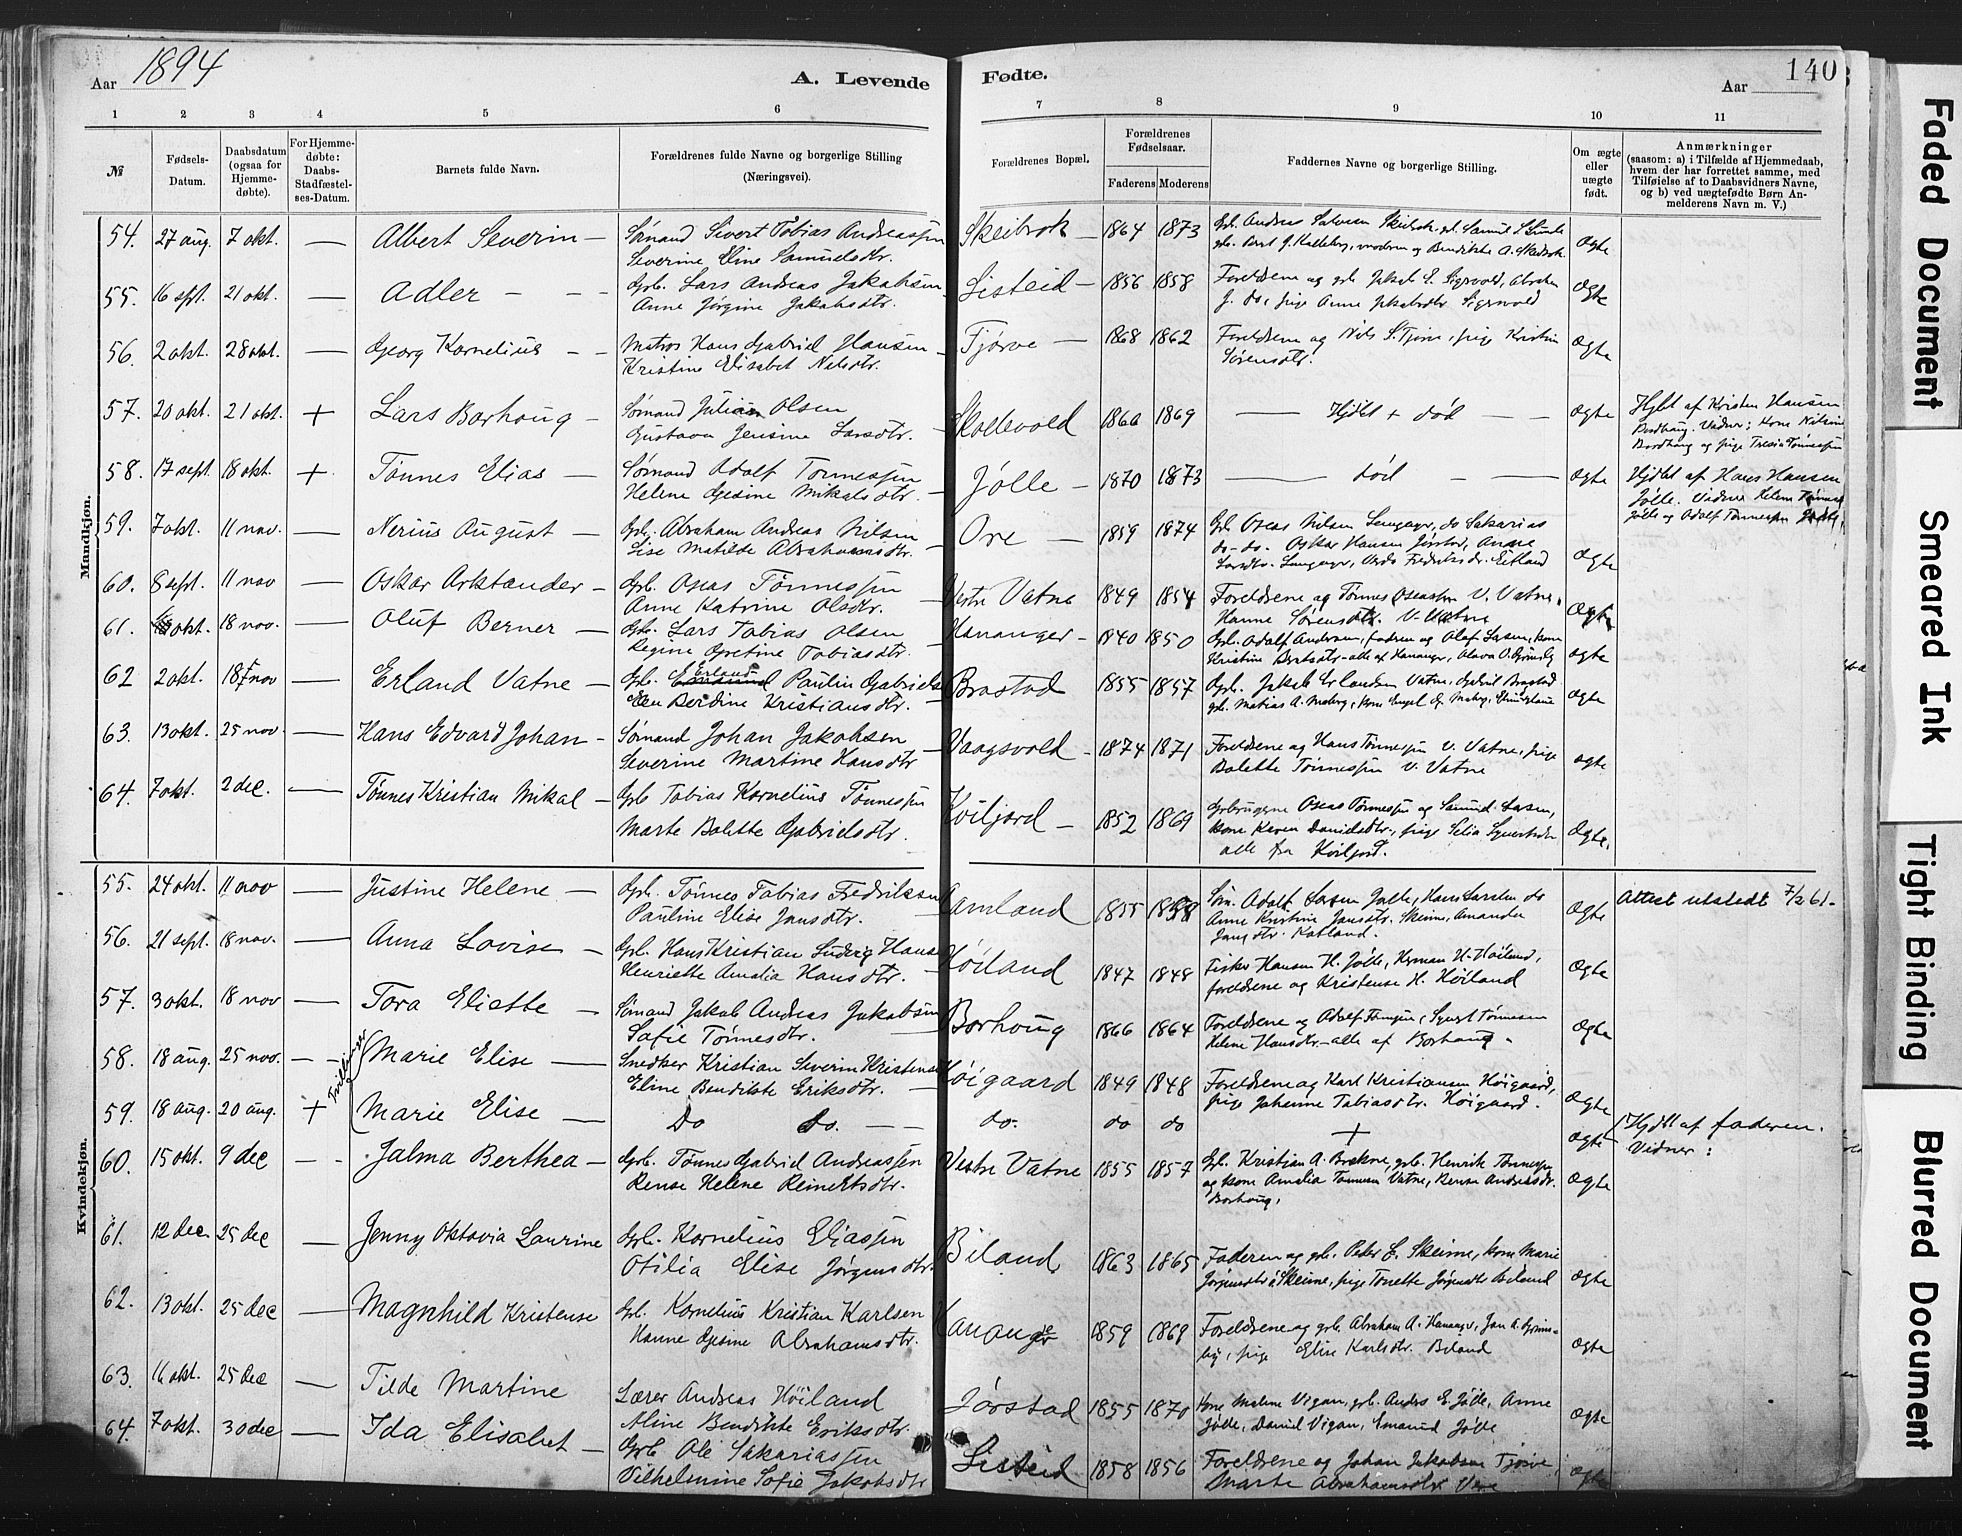 Aar 1894
A. Levende Fødte.
Aar
140
1 2 3 4 5 6 7 8 9 10 11
№
Fødsels-Datum.
Daabsdatum (ogsaa for Hjemme-døbte).
For Hjemme-døbte: Daabs-Stadfæstel-ses-Datum.
Barnets fulde Navn.
Forældrenes fulde Navne og borgerlige Stilling (Næringsvei).
Forældrenes Bopæl.
Forældrenes Fødselsaar.
Faderens Moderens
Faddernes Navne og borgerlige Stilling.
Om ægte eller uægte født.
Anmærkninger (saasom: a) i Tilfælde af Hjemmedaab, hvem der har forrettet samme, med Tilføielse af to Daabsvidners Navne, og b) ved uægtefødte Børn An-melderens Navn m. V.)
Mandkjøn.
54. 27 aug. 7 okt. — Albert Severin — Sömand Sivert Tobias Andreassen Skeibrok — 1864 1873 Gbr. Andreas Salvesen Skeibrok
Severine Eline Samuelsdtr. ægte
55. 16 spt. 21 okt. — Adler — Gbr. Lars Andreas Jakobsen Listeid — 1856 1858 Foreldrene og gbr. Jakob
Anne Jørgine Jakobsdtr. pige Anne Jakobsdtr ægte
56. 2 okt. 28 okt. — Georg Kornelius — Matros Hans Gabriel Hansen — Tjørve — 1868 1862 Foreldrene og Nils S. Tjørve, pige Kristin
Kristine Elisabet Nilsdtr. Sørensdtr. ægte
57. 20 okt. 21 okt. + Lars Borhoug — Sømand Julian Olsen Skollevold 1866 1869 — Hjdbt + død — ægte Hjbt af Kristen Hansen
Gustava Jensine Larsdtr. Borhaug. Vidner; kone
Borhaug og pige
58. 17 sept. 18 okt. + Tønnes Elias — Sømand Adolf Tønnessen Jølle — 1870 1873 — død — ægte Hjdbt af Hans Hansen
Helene Gesine Mikalsdtr. — Jølle. Vidner Helene
Jølle og Adolf Tønnessen
59. 7 okt. 11 nov. — Nerius August — Gbr. Abraham Andreas Nilsen Ore — 1859 1874 Gbr. Oseas Nilsen do Sakarias
Lise Matilde Abrahamsdtr. — do - do. Oskar Hansen Jørstad, Anne
ægte
60. 8 sept. 11 nov — Oskar Arktander — Gbr. Oseas Tønnessen Vestre Vatne 1849 1854 Foreldrene og Tønnes Oseassen V. Vatne,
Anne Katrine Olsdtr. Hanne Sørensdtr. V. Vatne ægte
61. okt. 18 nov. — Oluf Berner — Gbr. Lars Tobias Olsen Hananger — 1840 1850 Gbr. Adolf Andersen, faderen og Olaf Larsen, kone
Regine Gretine Tobiasdtr. Kristine alle af Hananger, ægte
62 2 okt. 18 nov — Erland Vatne — Gbr. Erland Paulin Gabrielsen Brastad 1855 1857 Gbr. Jakob Erlandsen Vatne, Gabriel Brastad
Elen Berdine Kristiansdtr. — gbr. Matias A. ægte
63. 13 okt. 25 nov. — Hans Edvard Johan — Sømand Johan Jakobsen Vaagsvold — 1874 1871 Foreldrene og Hans Tønnessen V. Vatne, pige
Severine Martine Hansdtr Bolette Tønnessen V. Vatne ægte
64. 7 okt. 2 dec. — Tønnes Kristian Mikal — Gbr Tobias Kornelius Tønnessen Kviljord — 1852 1869 Gbrugerne Oseas Tønnessen og Larsen,
Marte Bolette Gabrielsdtr. kone Karen Danielsdtr., pige
alle fra Kviljord. ægte.
Kvindekjøn.
55. 24 okt. 11 nov — Justine Helene — Gbr. Tønnes Tobias Fredriksen Lamland 1855 1858 Søm. Adolf Larsen Jølle, Hans Larsen do ægte Attest utstedt 7/2 61.
Pauline Elise Jansdtr. Anne Kristine Jansdtr. Skeime, Amanda
Jansdtr. Katland.
56. 21 sept. 18 nov. — Anna Lovise — Gbr. Hans Kristian Ludvig Hansen Høiland 1847 1848 Fisker Hansen H. Jølle, Herman H. Høiland, ægte
Henriette Amalia Hansdtr. foreldrene og Kristense H. Høiland
57. 3 okt. 18 nov — Tora Eliette — Sømand Jakob Andreas Jakobsen Borhoug 1866 1864 Foreldrene og Adolf
Sofie Tønnesdtr. Helene Hansdtr. — alle af Borhaug. ægte
58. 18 aug. 25 nov. — Marie Elise — Snedker Kristian Severin Kristensen Høigaard 1849 1848 Foreldrene og Karl Kristiansen Høigaard,
Tvillinger
Eline Bendikte Eriksdtr. — pige Johanne Tobiasdtr. Høigaard. ægte
59. 18 aug. 20 aug. + Marie Elise — Do do. — do. do do + ægte Hjdbt af faderen.
Vidner:
60. 15 okt. 9 dec — Jalma Berthea — Gbr. Tønnes Gabriel Andreassen Vestre Vatne 1855 1857 Gbr. Kristian A. Brekne, gbr. Henrik Tønnessen
Rense Helene Reinertsdtr. og kone Amalia Vatne, Rense Andreasdtr.
Borhaug, ægte
61. 12 dec. 25 dec — Jenny Oktavia Laurine Gbr. Kornelius Eliassen Biland 1863 1865 Faderen og gbr. Peder L. Skeime, kone Marie
Otilia Elise Jørgensdtr. Jørgensdtr. Skeime, pige Tonette Jørgensdtr Biland ægte
62. 13 okt. 25 dec — Magnhild Kristense Gbr. Kornelius Kristian Karlsen Hananger 1859 1869 Foreldrene og gbr. Abraham A. Hananger, Jan A.
Hanne Gesine Abrahamsdtr. pige Elise Karlsdtr. Biland ægte
63. 16 okt. 25 dec — Tilde Martine Lærer Andreas Høiland Jørstad 1855 1870 Kone Malene Vigan, gbr. Anders E. Jølle, Anne
Aline Bendikte Eriksdtr. Jølle, Daniel Vigan, Emanuel Jølle ægte
64. 7 okt. 30 dec — Ida Elisabet — Gbr Ole Sakariassen Listeid 1858 1856 Foreldrene og Johan Jakobsen Tjørve,
Vilhelmine Sofie Jakobsdtr Marte Abrahamsdtr ægte
Faded Document
Smeared Ink
Tight Binding
Blurred Document